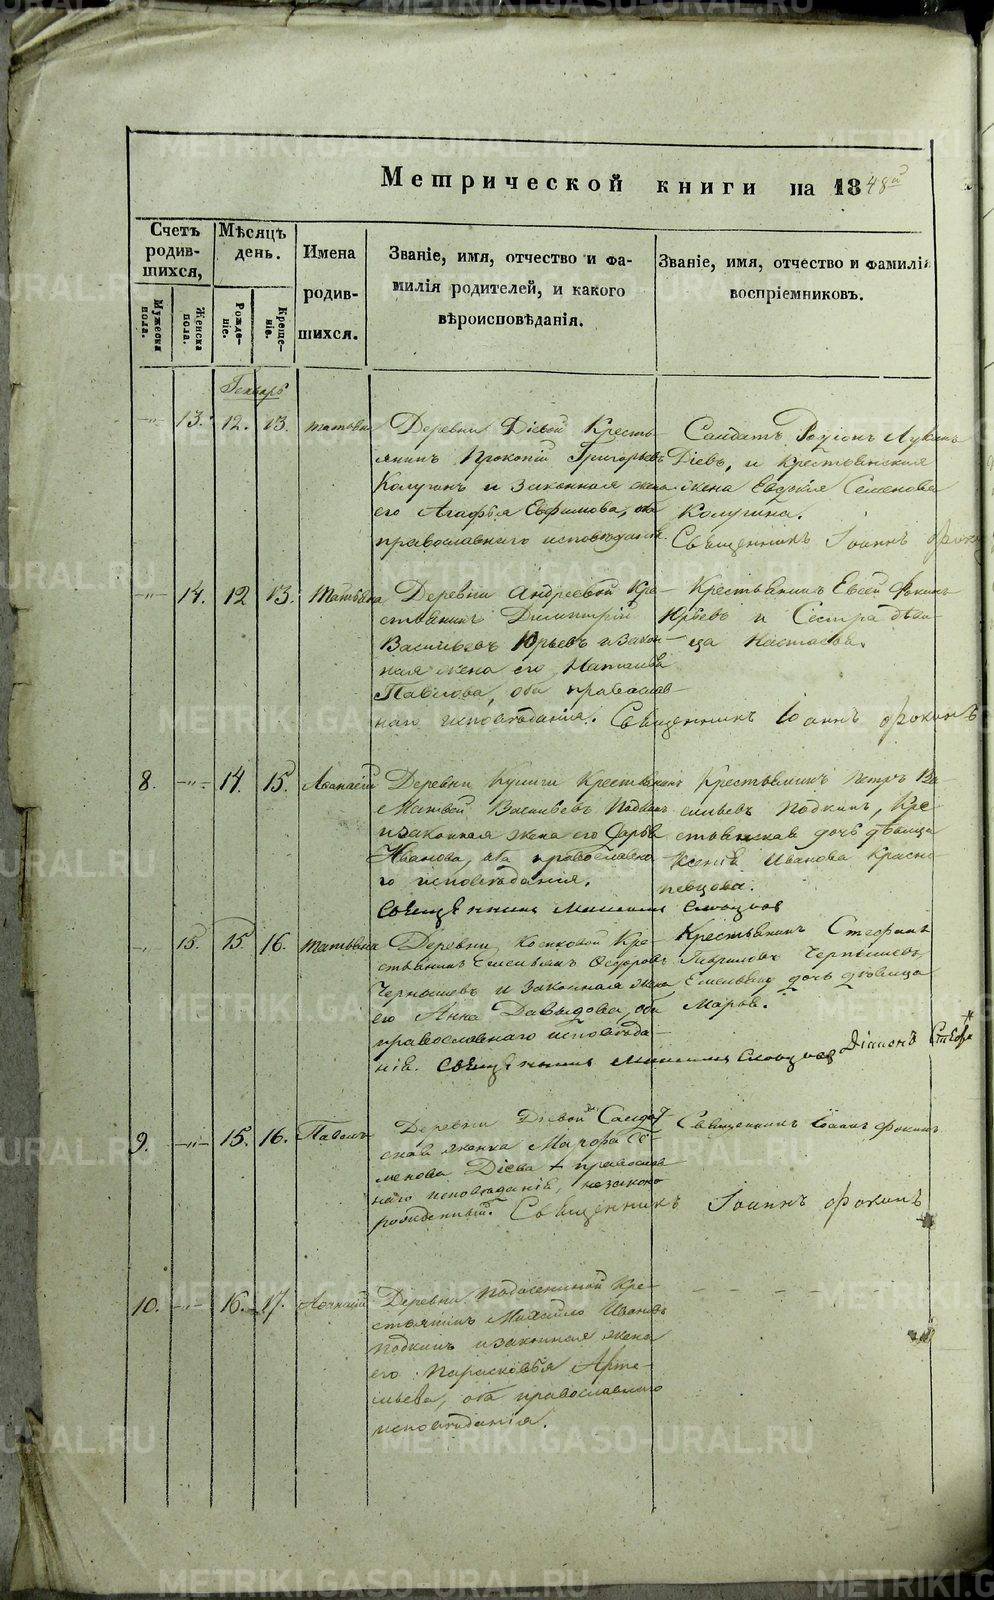 Метрической книги на 1848й
Счетъ родив-шихся,
Мѣсяцъ день.
Имена родив-шихся.
Званіе, имя, отчество и фа-
милія родителей, и какого
вѣроисповѣданія.
Званіе, имя, отчество и фамилія
воспріемниковъ.
Мужеска пола.
Женска пола.
Рожде-ніе.
Креще-ніе.
Генварь
13. 12. 13. Татьяна
Деревни Діевой Кресть-
янинъ Прокопій Григорьевъ
Калугинъ и законная жена
его Агафья Ефимова, оба
православнаго исповѣданія.
Салдатъ Родіонъ
Діевъ, и крестьянская
жена Евдокія Семенова
Калугина.
Священникъ Іоаннъ Фокинъ
14. 12 13. Татьяна
Деревни Андреевой Кре-
стьянинъ Димитрій
Васильевъ Юрьевъ и закон-
ная жена его
Павлова, оба православ-
наго исповѣданія. Священникъ Іоаннъ Фокинъ
Крестьянинъ Евсей
Юрьевъ и Сестра дѣви-
ца Настасья.
8. 14. 15. Аѳанасій
Деревни Крестьянинъ
Матвей Васильевъ
и законная жена его Дарья
Иванова, оба православна-
го исповѣданія.
Крестьянинъ Петръ Ва-
сильевъ Кре-
стьянская дочь дѣвица
Ксенія Иванова Красно-
певцова.
Священникъ Словцовъ
15. 15. 16. Татьяна
Деревни Кре-
стьянинъ Емельянъ Ѳедоровъ
Чернышевъ и законная жена
его Анна Давыдова, оба
православнаго исповѣда-
нія. Священникъ Словцовъ
Крестьянинъ Стефанъ
Гавриловъ Чернышевъ,
дочь дѣвица
Марья.
Діаконъ
9. 15. 16. Павелъ
Деревни Діевой Салдат-
ская женка Мавра Се-
менова Діева православ-
наго исповѣданія, незаконо-
рожденный. Священникъ Іоаннъ Фокинъ
Священникъ Іоаннъ Фокинъ
10. 16. 17.
Деревни Кре-
стьянинъ Михайло Ивановъ
и законная жена
его Парасковья Арте-
мьева, оба православнаго
исповѣданія.
METRIKI.GASO-URAL.RU